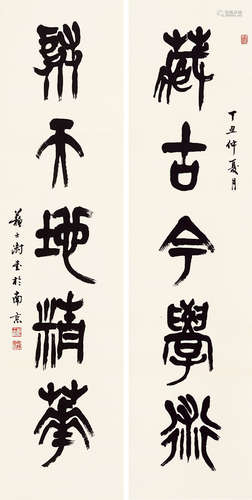 藏古今學術
丁丑仲夏月
聚天地精華
蘇士澍書於南京